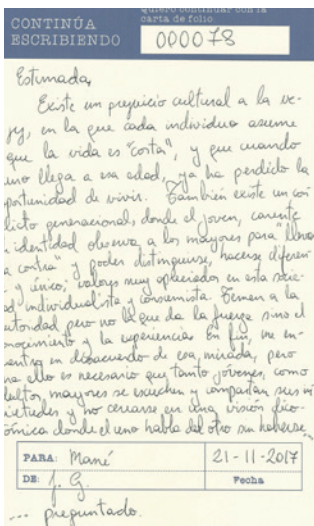 quiero continuar con la
CONTINÚA carta de folio
ESCRIBIENDO 000078
Estimada,
Existe un prejuicio cultural a la ve-
jez, en la que cada individuo asume
que la vida es "corta", y que cuando
uno llega a esa edad, ya ha perdido la
portunidad de vivir. También existe un con
licto generacional, donde el joven, carente
identidad observa a los mayores para "lleva
a contra" y poder distinguirse, hacerse diferen
y único; valores muy apreciados en esta socie-
ad individualista y consumista. Temen a la
utoridad pero no la que da la fuerza sino el
nocimiento y la experiencia. En fin, me en-
entro en desacuerdo de esa mirada, pero
ra ello es necesario que tanto jóvenes, como
ultos, mayores se escuchen y compartan sus in
ietudes y no cerrarse en una visión dico-
ómica donde el uno habla del otro sin haberse
PARA: Mamé 21-11-2017
DE: J. G. Fecha
... preguntado.